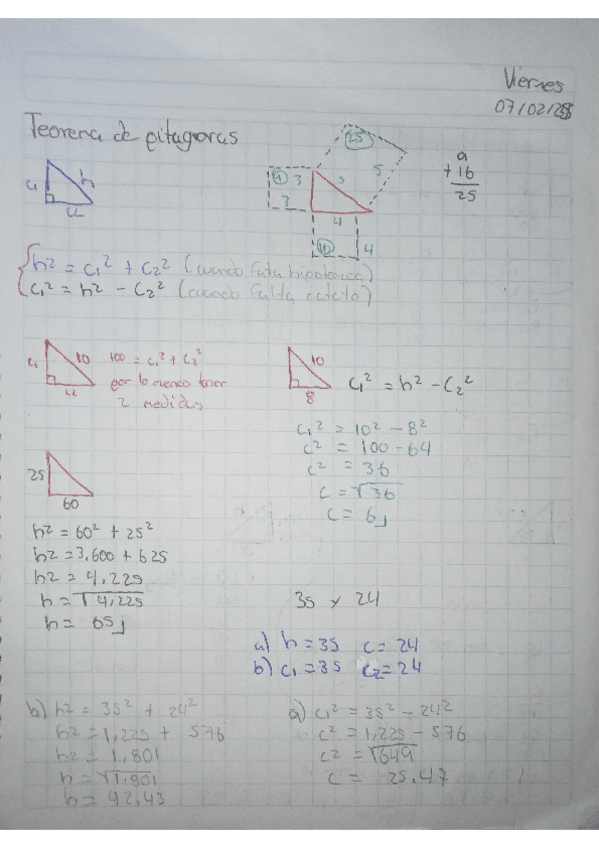 Viernes
07/02/25
Teorema de pitagoras
25
9
3
3
5
5
4
16
4
9
+ 16
25
c₁
h
c₂
h² = c₁² + c₂² (cuando falta hipotenusa)
c₁² = h² - c₂² (cuando falta cateto)
c₁
10
c₂
100 = c₁² + c₂²
por lo menos tener
2 medidas
10
8
c₁² = h² - c₂²
c₁² = 10² - 8²
c² = 100 - 64
c² = 36
c = √36
c = 6
25
60
h² = 60² + 25²
h² = 3,600 + 625
h² = 4,225
h = √4,225
h = 65
35 y 24
a) h = 35 c = 24
b) c₁ = 35 c₂ = 24
b) h² = 35² + 24²
h² = 1,225 + 576
h² = 1,801
h = √1,801
h = 42.43
a) c₁² = 35² - 24²
c² = 1,225 - 576
c² = √649
c = 25.47